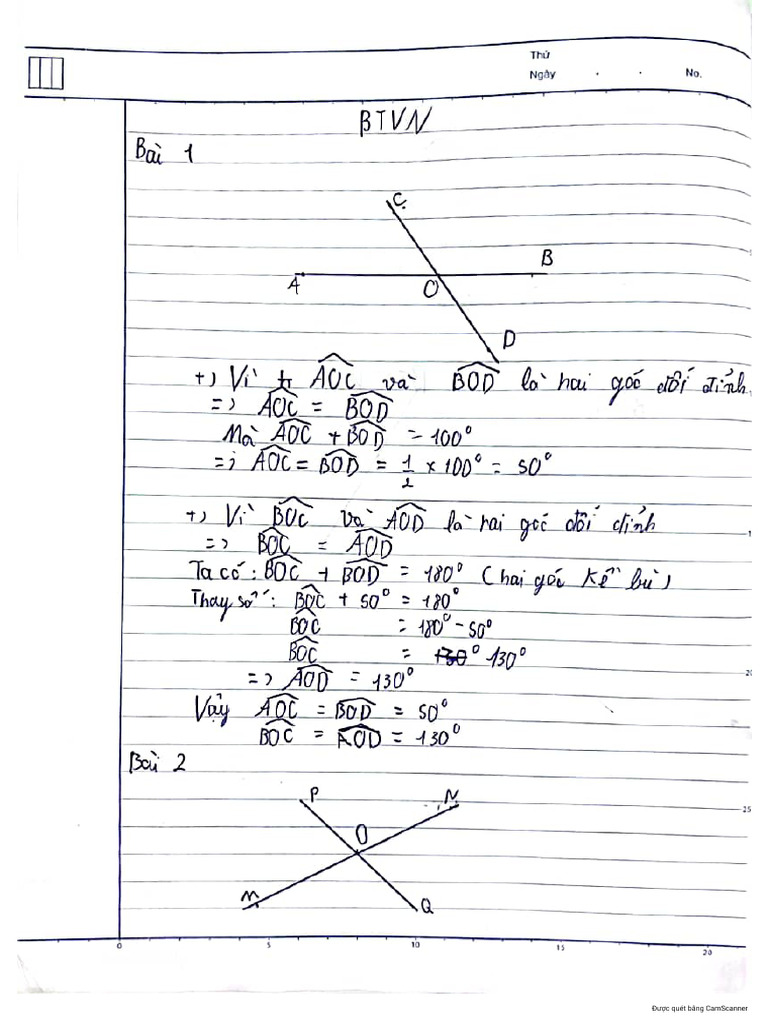 Thứ
Ngày . . No.
BTVN
Bài 1
C
B
A
O
D
+) Vì \widehat{AOC} và \widehat{BOD} là hai góc đối đỉnh
=> \widehat{AOC} = \widehat{BOD}
Mà \widehat{AOC} + \widehat{BOD} = 100°
=> \widehat{AOC} = \widehat{BOD} = 1/2 x 100° = 50°
+) Vì \widehat{BOC} và \widehat{AOD} là hai góc đối đỉnh
=> \widehat{BOC} = \widehat{AOD}
Ta có: \widehat{BOC} + \widehat{BOD} = 180° (hai góc kề bù)
Thay số: \widehat{BOC} + 50° = 180°
\widehat{BOC} = 180° - 50°
\widehat{BOC} = 130°
=> \widehat{AOD} = 130°
Vậy \widehat{AOC} = \widehat{BOD} = 50°
\widehat{BOC} = \widehat{AOD} = 130°
Bài 2
P N
O
M Q
0 5 10 15 20
Được quét bằng CamScanner